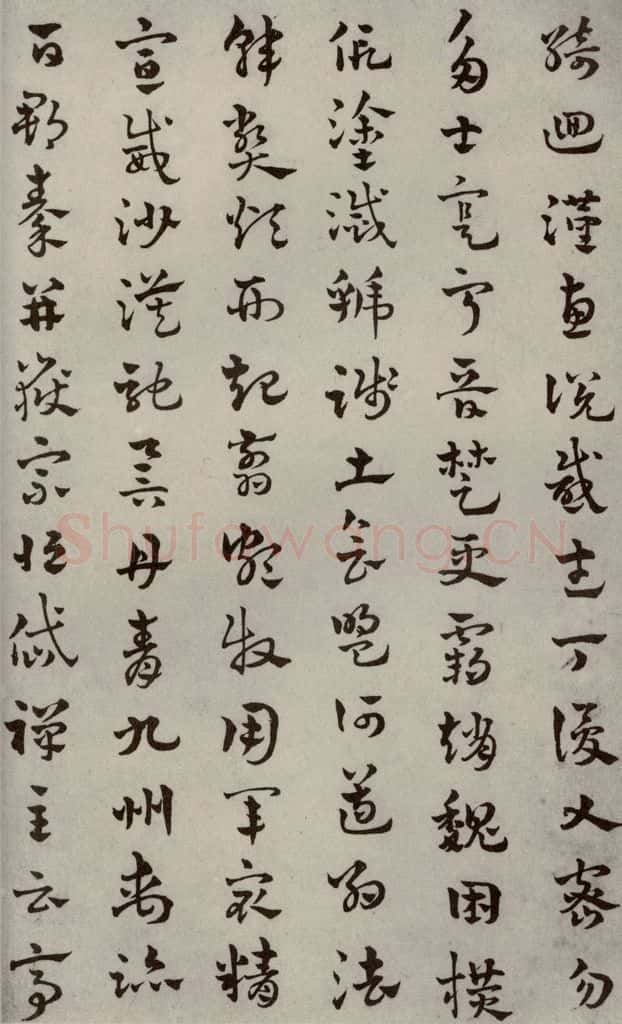 綺迴漢惠說感武丁俊乂密勿
多士寔寧晉楚更霸趙魏困橫
假塗滅虢踐土會盟何遵約法
韓弊煩刑起翦頗牧用軍最精
宣威沙漠馳譽丹青九州禹跡
百郡秦并嶽宗恒岱禪主云亭
Shufawang.CN